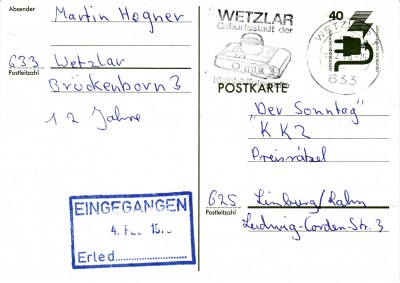 Absender
Martin Hegner
633 Wetzlar
Postleitzahl
Brückenborn 3
12 Jahre
EINGEGANGEN
4. FEB. 19
Erled.
WETZLAR
Geburtsstadt der
40
WETZLAR
633
POSTKARTE
"Der Sonntag"
KK2
Preisrätsel
625 Limburg/Lahn
Postleitzahl
Ludwig-Corden-Str. 3